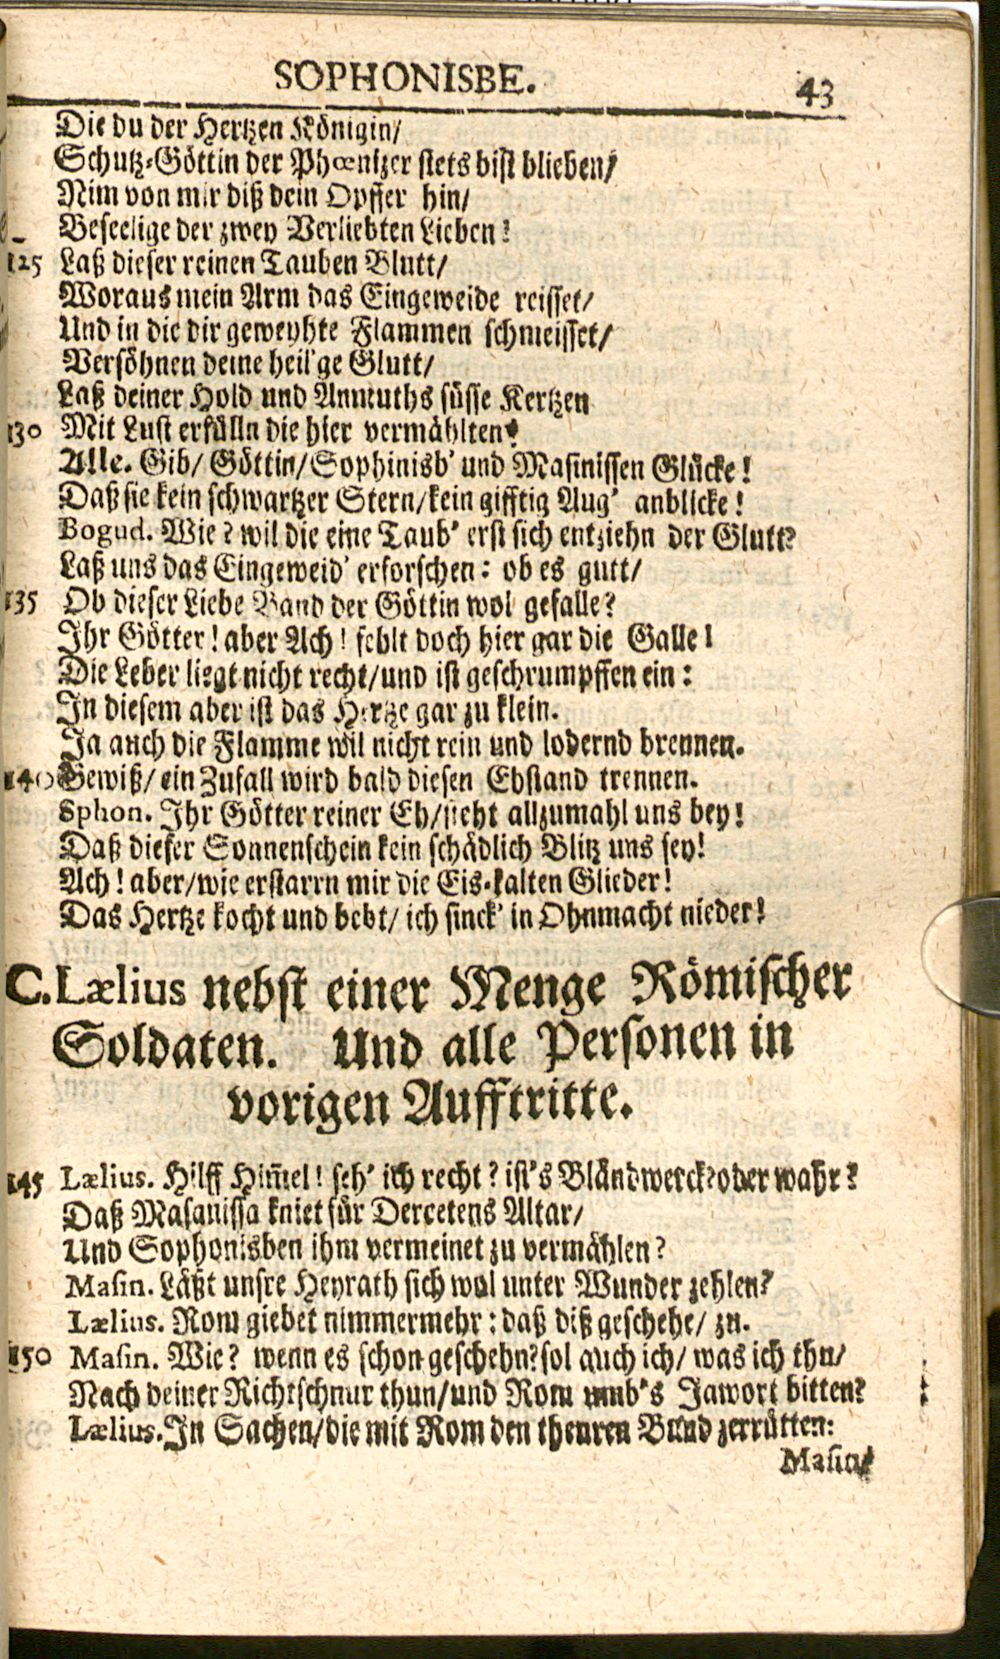 SOPHONISBE. 43
Die du der Hertzen Königin/
Schutz-Göttin der Phœnizer stets bist blieben/
Nim von mir diß dein Opffer hin/
Beseelige der zwey Verliebten Lieben!
125 Laß dieser reinen Tauben Blutt/
Woraus mein Arm das Eingeweide reisset/
Und in die dir geweyhte Flammen schmeisset/
Versöhnen deine heil'ge Glutt/
Laß deiner Hold und Anmuths süsse Kertzen
130 Mit Lust erfülln die hier vermählten
Alle. Gib/ Göttin/ Sophinisb' und Masinissen Glücke!
Daß sie kein schwartzer Stern/ kein gifftig Aug' anblicke!
Bogud. Wie? wil die eine Taub' erst sich entziehn der Glutt?
Laß uns das Eingeweid' erforschen: ob es gutt/
135 Ob dieser Liebe Band der Göttin wol gefalle?
Ihr Götter! aber Ach! fehlt doch hier gar die Galle!
Die Leber liegt nicht recht/ und ist geschrumpffen ein:
In diesem aber ist das Hertze gar zu klein.
Ja auch die Flamme wil nicht rein und lodernd brennen.
140 Gewiß/ ein Zufall wird bald diesen Ehstand trennen.
Sphon. Ihr Götter reiner Eh/ steht allzumahl uns bey!
Daß dieser Sonnenschein kein schädlich Blitz uns sey!
Ach! aber/ wie erstarrn mir die Eis-kalten Glieder!
Das Hertze kocht und bebt/ ich sinck' in Ohnmacht nieder!
C. Lælius nebst einer Menge Römischer
Soldaten. Und alle Personen in
vorigen Aufftritte.
145 Lælius. Hilff Him̃el! seh' ich recht? ist's Bländwerck? oder wahr?
Daß Masanissa kniet für Dercetens Altar/
Und Sophonisben ihm vermeinet zu vermählen?
Masin. Läßt unsre Heyrath sich wol unter Wunder zehlen?
Lælius. Rom giebet nimmermehr: daß diß geschehe/ zu.
150 Masin. Wie? wenn es schon geschehn? sol auch ich/ was ich thu/
Nach deiner Richtschnur thun/ und Rom umb's Jawort bitten?
Lælius. In Sachen/ die mit Rom den theuren Bund zerrütten:
Masin.